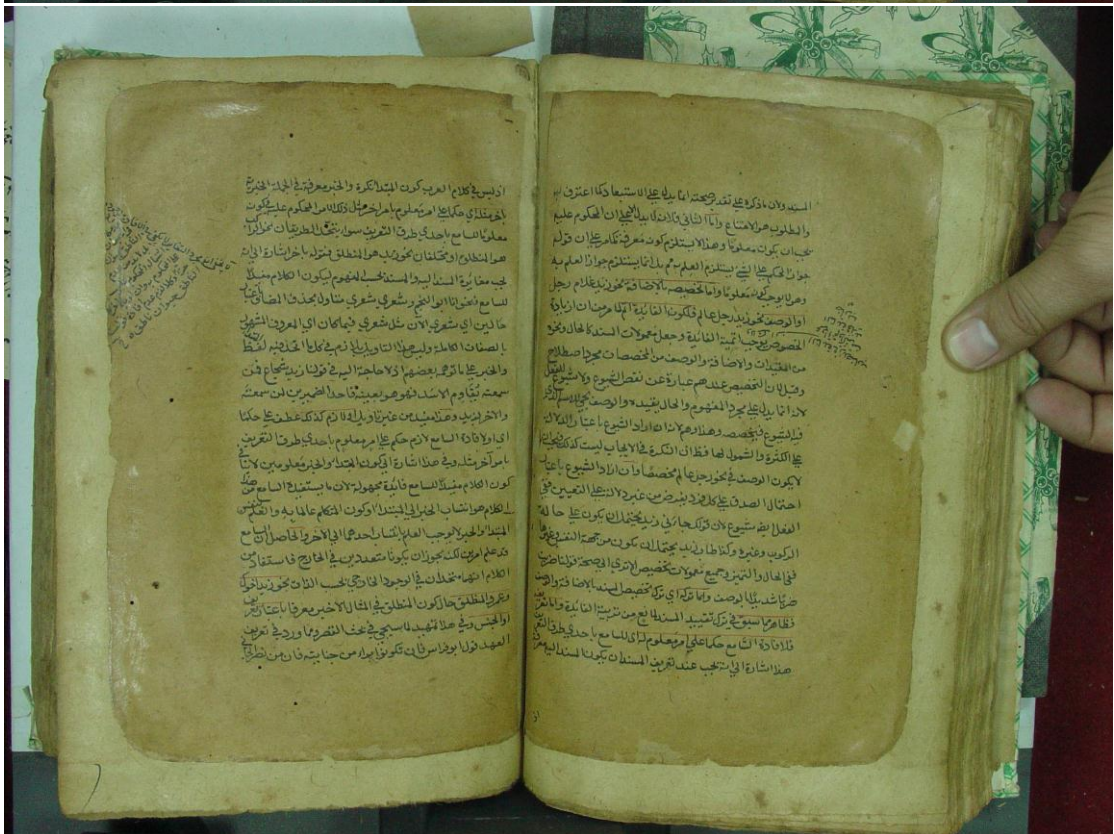 المسند ولان ما ذكره على تقدير صحته انما يدل على الاستبعاد كما اعترف به
والمطلوب هو الامتناع واما الثاني فلان المحكوم عليه
يجب ان يكون معلوما وهذا لا يستلزم كونه معرفة كما مر على ان قوله
جواز الحكم على الشيء يستلزم العلم به مم بل انما يستلزم جواز العلم به
وهو لا يوجب كونه معلوما واما تخصيصه بالاضافة نحو زيد غلام رجل
او الوصف نحو زيد رجل عالم فلكون الفائدة اتم لما مر من ان زيادة
الخصوص يوجب اتمية الفائدة وجعل معمولات المسند كالحال ونحوه
من المقيدات والاضافة والوصف من المخصصات مجرد اصطلاح
وقيل لان التخصيص عندهم عبارة عن نقص الشيوع ولا شيوع للفعل
لانه انما يدل على مجرد المفهوم والحال يقيده والوصف يجئ للاسم الذي
فيه الشيوع فيخصصه وهذا وهم لانه ان اراد الشيوع باعتبار الدلالة
على الكثرة والشمول فظ ان النكرة في الايجاب ليست كذلك فيجب ان
لا يكون الوصف في نحو رجل عالم مخصصا وان اراد الشيوع باعتبار
احتمال الصدق على كل فرد يفرض من غير دلالة على التعيين ففي
الفعل ايضا شيوع لان قولك جاءني زيد يحتمل ان يكون على حالة
الركوب وغيره وكذا طاب زيد يحتمل ان يكون من جهة النفس وغيرها
ففي الحال والتمييز وجميع معمولات تخصيص الا ترى الى صحة قولنا ضربت
ضربا شديدا بالوصف واما تركه اي ترك تخصيص المسند بالاضافة والوصف
فظاهر مما سبق في ترك تقييد المسند لمانع من تربية الفائدة واما تعريفه
فلافادة السامع حكما على امر معلوم له اي للسامع باحدي طرق التعريف
هذا اشارة الى انه يجب عند تعريف المسند ان يكون المسند اليه معرفة
اذ ليس في كلام العرب كون المبتدا نكرة والخبر معرفة في الجملة الخبرية
باخر مثله اي حكما على امر معلوم بامر اخر مثل ذلك الامر المحكوم عليه في كونه
معلوما للسامع باحدي طرق التعريف سواء يتحد الطريقان نحو الراكب
هو المنطلق او يختلفان نحو زيد هو المنطلق فقوله باخر اشارة الى انه
يجب مغايرة المسند اليه والمسند بحسب المفهوم ليكون الكلام مفيدا
للسامع فنحو انا ابو النجم وشعري شعري متاول بحذف المضاف باعتبار
حالين اي شعري الان مثل شعري فيما كان اي المعروف المشهور
بالصفات الكاملة وليس هذا التاويل بلازم في كل ما اتحد فيه لفظ المبتدا
والخبر على ما توهمه بعضهم اذ لا حاجة اليه في قولنا زيد شجاع فمن
سمعته يقاوم الاسد فهو هو بعينه فاحد الضميرين لمن سمعته
والاخر لزيد وهذا مفيد من غير تاويل او لازم كذلك عطف على حكما
اي او لافادة السامع لازم حكم على امر معلوم باحدي طرق التعريف
بامر آخر مثله وفي هذا اشارة الى كون المبتدا والخبر معلومين لا ينافي
كون الكلام مفيدا للسامع فائدة مجهولة لان ما يستفيده السامع من
الكلام هو انتساب الخبر الى المبتدا او كون المتكلم عالما به والعلم بنفس
المبتدا والخبر لا يوجب العلم بانتساب احدهما الى الآخر والحاصل ان السامع
قد علم امرين لكنه يجوز ان يكونا متعددين في الخارج فاستفاد من
الكلام انهما متحدان في الوجود الخارجي بحسب الذات نحو زيد اخوك
وعمرو المنطلق حال كون المنطلق في المثال الاخير معرفا باعتبار تعريف العهد
او الجنس وفي هذا تمهيد لما سيجئ في بحث القصر ومما ورد في تعريف
العهد قول ابو فراس فان تكونوا براء من جنايته فان من نصر الجاني